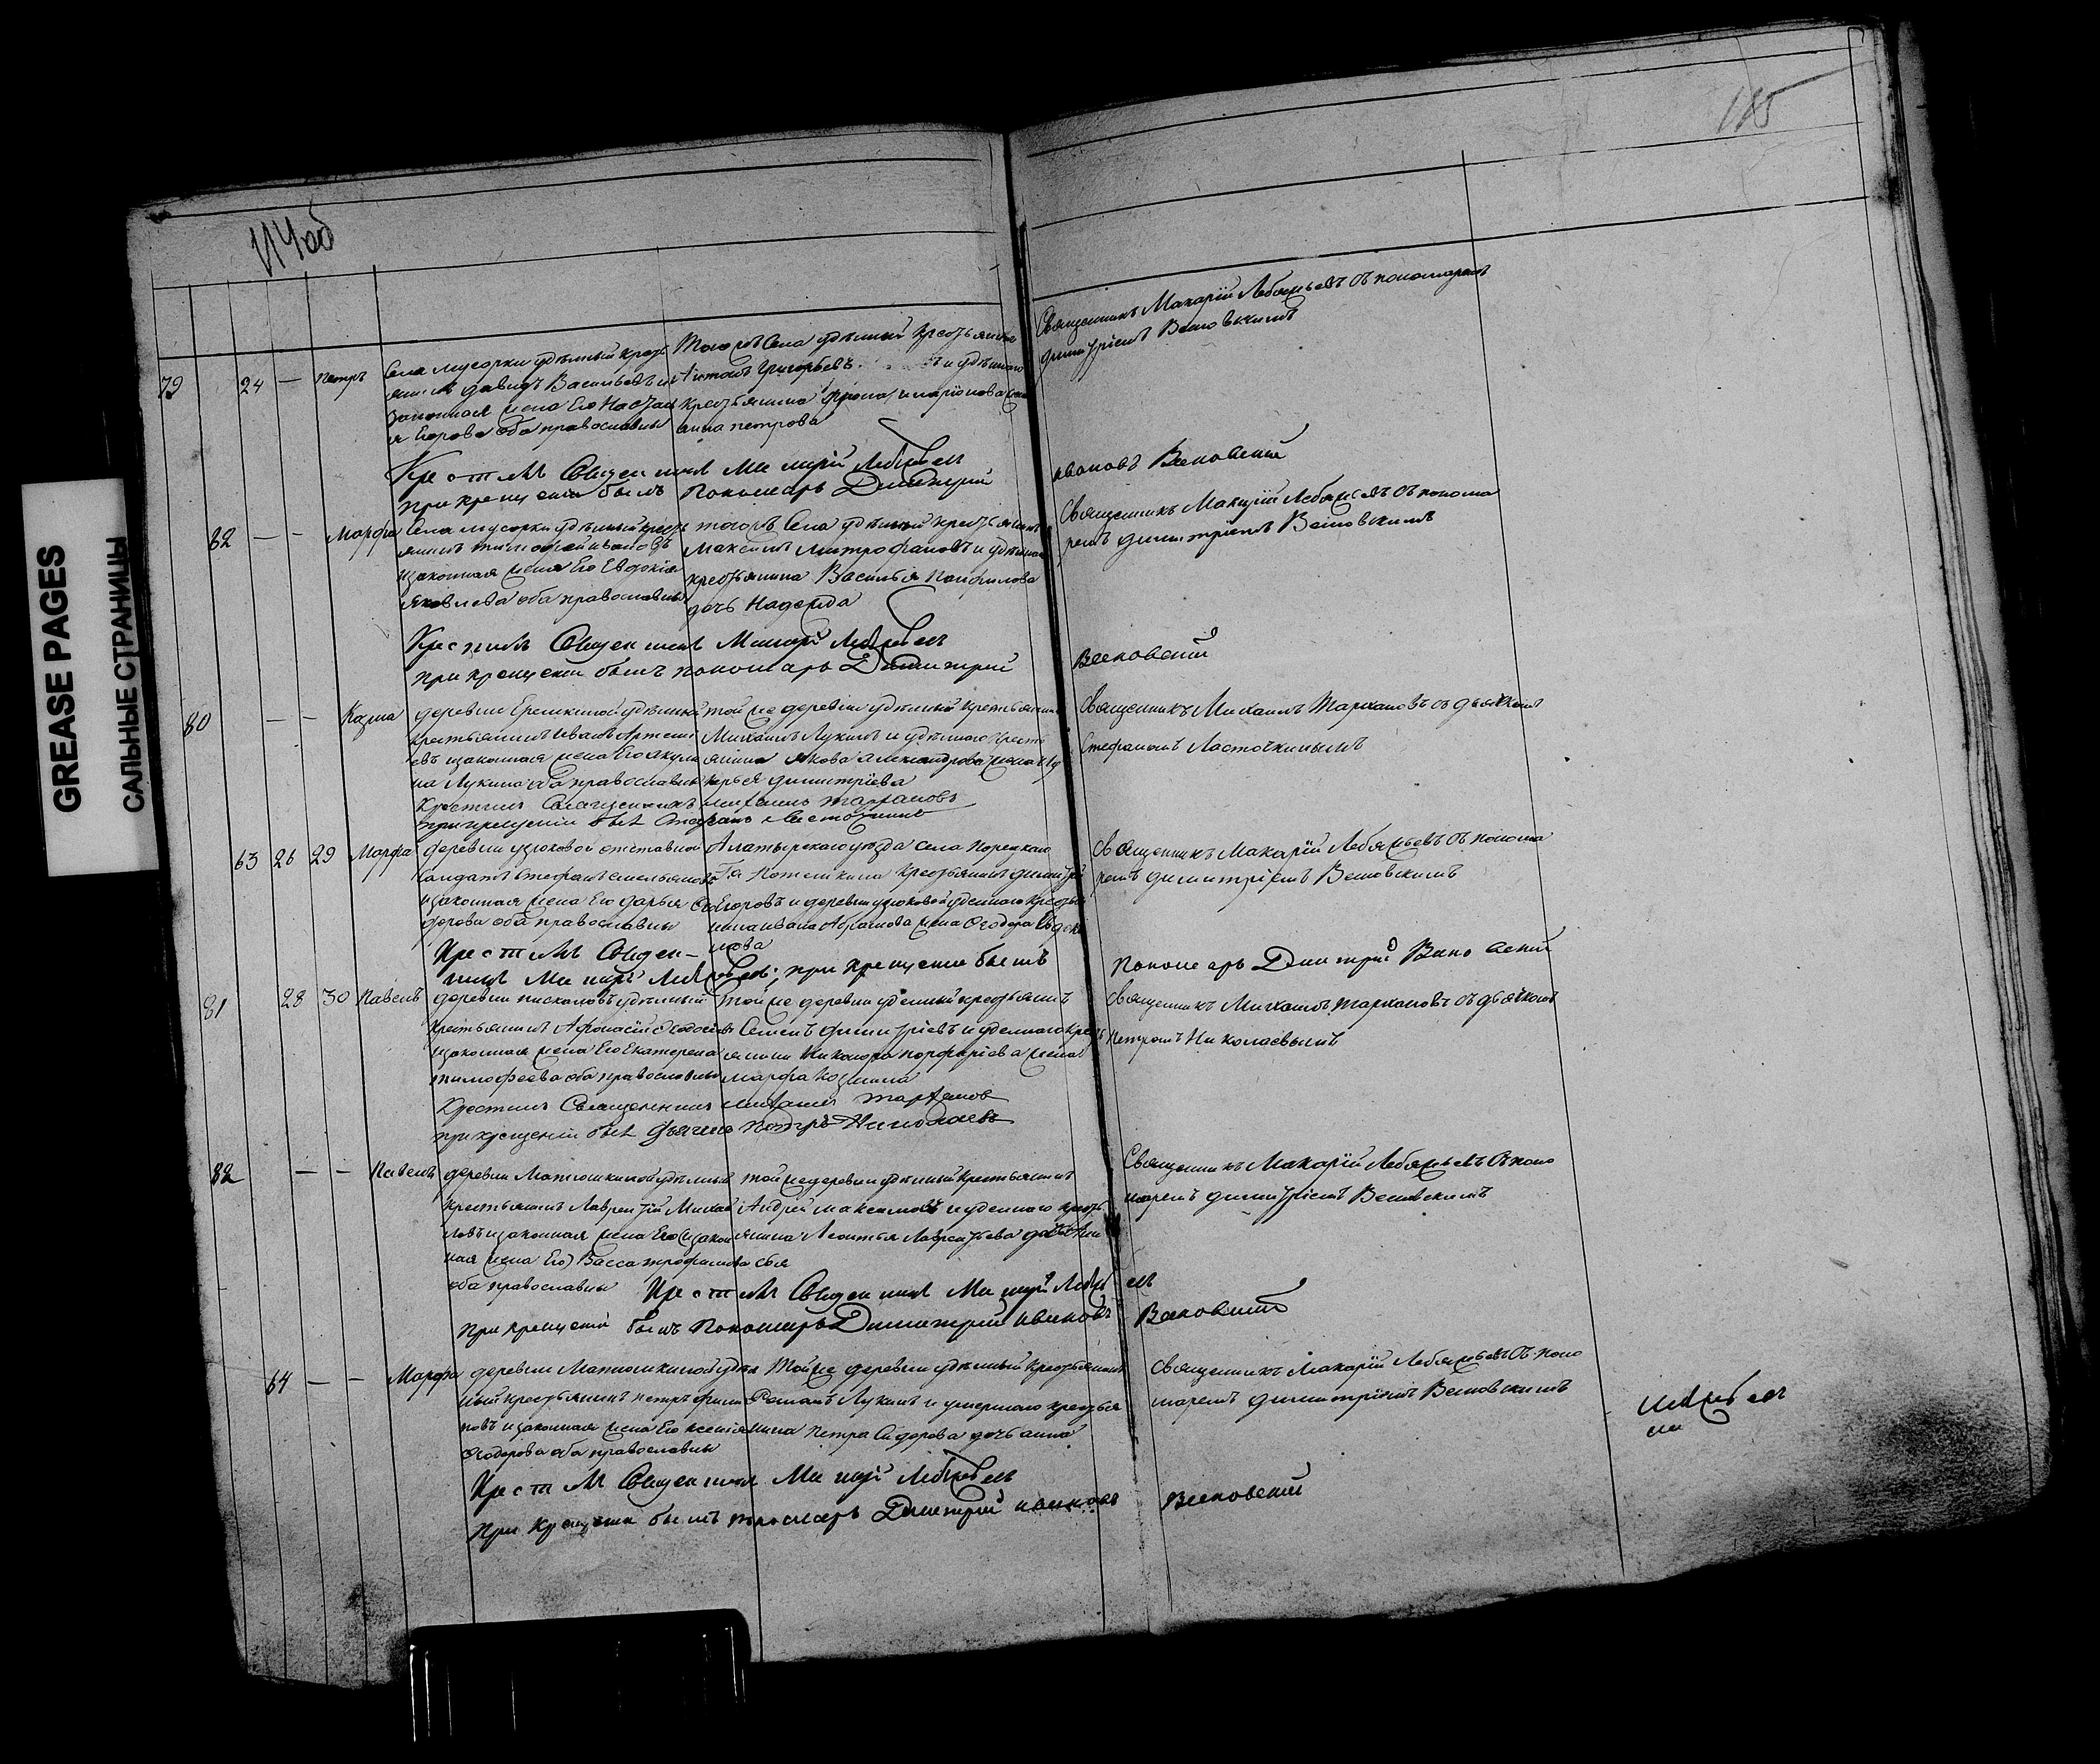 GREASE PAGES
САЛЬНЫЕ СТРАНИЦЫ
114об
115
79 24 — Петръ
Села мусорки удѣльный крестъ
янинъ давидъ Васильевъ и
законная жена Его Настасi
я Егорова оба православны
Тогожъ Села удѣльный крестьянинъ
Антонъ Григорьевъ и удѣльнаго
крестьянина иларiонова
анна петрова
Священникъ Макарiй Лебяжьевъ съ пономаремъ
димитрiемъ
Крестилъ Священникъ Макарiй Лебяжьевъ
при крещенiи былъ Пономарь Димитрий
ивановъ
82 — — Марфа
Села мусорки удѣльный крестъ
янинъ тимофей ивановъ
и законная жена Его Евдокiя
Яковлева оба православны
тогожъ Села удѣльный крестьянинъ
Максимъ митрофановъ и удѣльнаго
крестьянина Василья Панфилова
дочь Надежда
Священникъ Макарiй Лебяжьевъ съ понома
ремъ димитрiемъ
Крестилъ Священникъ Макарiй Лебяжьевъ
при крещенiи былъ пономарь Димитрий
80 — — Козма
деревни Еремкиной удѣльный
крестьянинъ иванъ Артемь
евъ и законная жена Его Акули
на Лукина оба православны
той же деревни удѣльный крестьянинъ
Михаилъ Лукинъ и удѣльнаго кресть
янина Якова александрова жена
дарья димитрiева
Священникъ Михаилъ Тархановъ съ дьячкомъ
Стефаномъ Ласточкинымъ
Крестилъ Священникъ михаилъ Тархановъ
при крещенiи былъ Стефанъ Ласточкинъ
63 26 29 Марфа
деревни узюковой отставной
Солдатъ Стефанъ емельяновъ
и законная жена Его дарья Ѳе
дорова оба православны
Алатырскаго уѣзда Села Порецкаго
крестьянинъ димитрiй
Егоровъ и деревни узюковой удѣльнаго крестья
нина ивана Абрамова жена Ѳеодора
Священникъ Макарiй Лебяжьевъ съ понома
ремъ димитрiемъ
Крестилъ Священ-
никъ Макарiй Лебяжьевъ; при крещенiи былъ
Пономарь Димитрiй
81 28 30 Павелъ
деревни пискаловъ удѣльный
крестьянинъ Афонасiй
и законная жена Его Екатерина
тимофеева оба православны
той же деревни удѣльный крестьянинъ
Семенъ димитрiевъ и удѣльнаго крестъ
янина Никанора порфирiева жена
марфа козмина
Священникъ Михаилъ Тархановъ съ дьячкомъ
Петромъ Николаевымъ
Крестилъ Священникъ михаилъ Тархановъ
при крещенiи былъ дьячекъ Петръ Николаевъ
82 — — Павелъ
деревни Матюшкиной удѣльный
крестьянинъ Лаврентiй Михай
ловъ и законная жена Его (и закон
ная жена Его) Васса трофимова
оба православны
той же деревни удѣльный крестьянинъ
Андрей максимовъ и удѣльнаго кресть
янина Леонтья Лаврентьева дочь
Священникъ Макарiй Лебяжьевъ съ поно
маремъ димитрiемъ
Крестилъ Священникъ Макарiй Лебяжь
евъ
При крещенiи былъ Пономарь Димитрий ивановъ
64 — — Марфа
деревни Матюшкиной удѣл
ный крестьянинъ петръ фили
повъ и законная жена Его ксенiя
Ѳеодорова оба православны
Той же деревни удѣльный крестьянинъ
Романъ Лукинъ и умершаго крестья
нина Петра Сидорова дочь анна
Священникъ Макарiй Лебяжьевъ съ поно
маремъ димитрiемъ
Крестилъ Священникъ Макарiй Лебяжьевъ
При крещенiи былъ пономарь Димитрий ивановъ